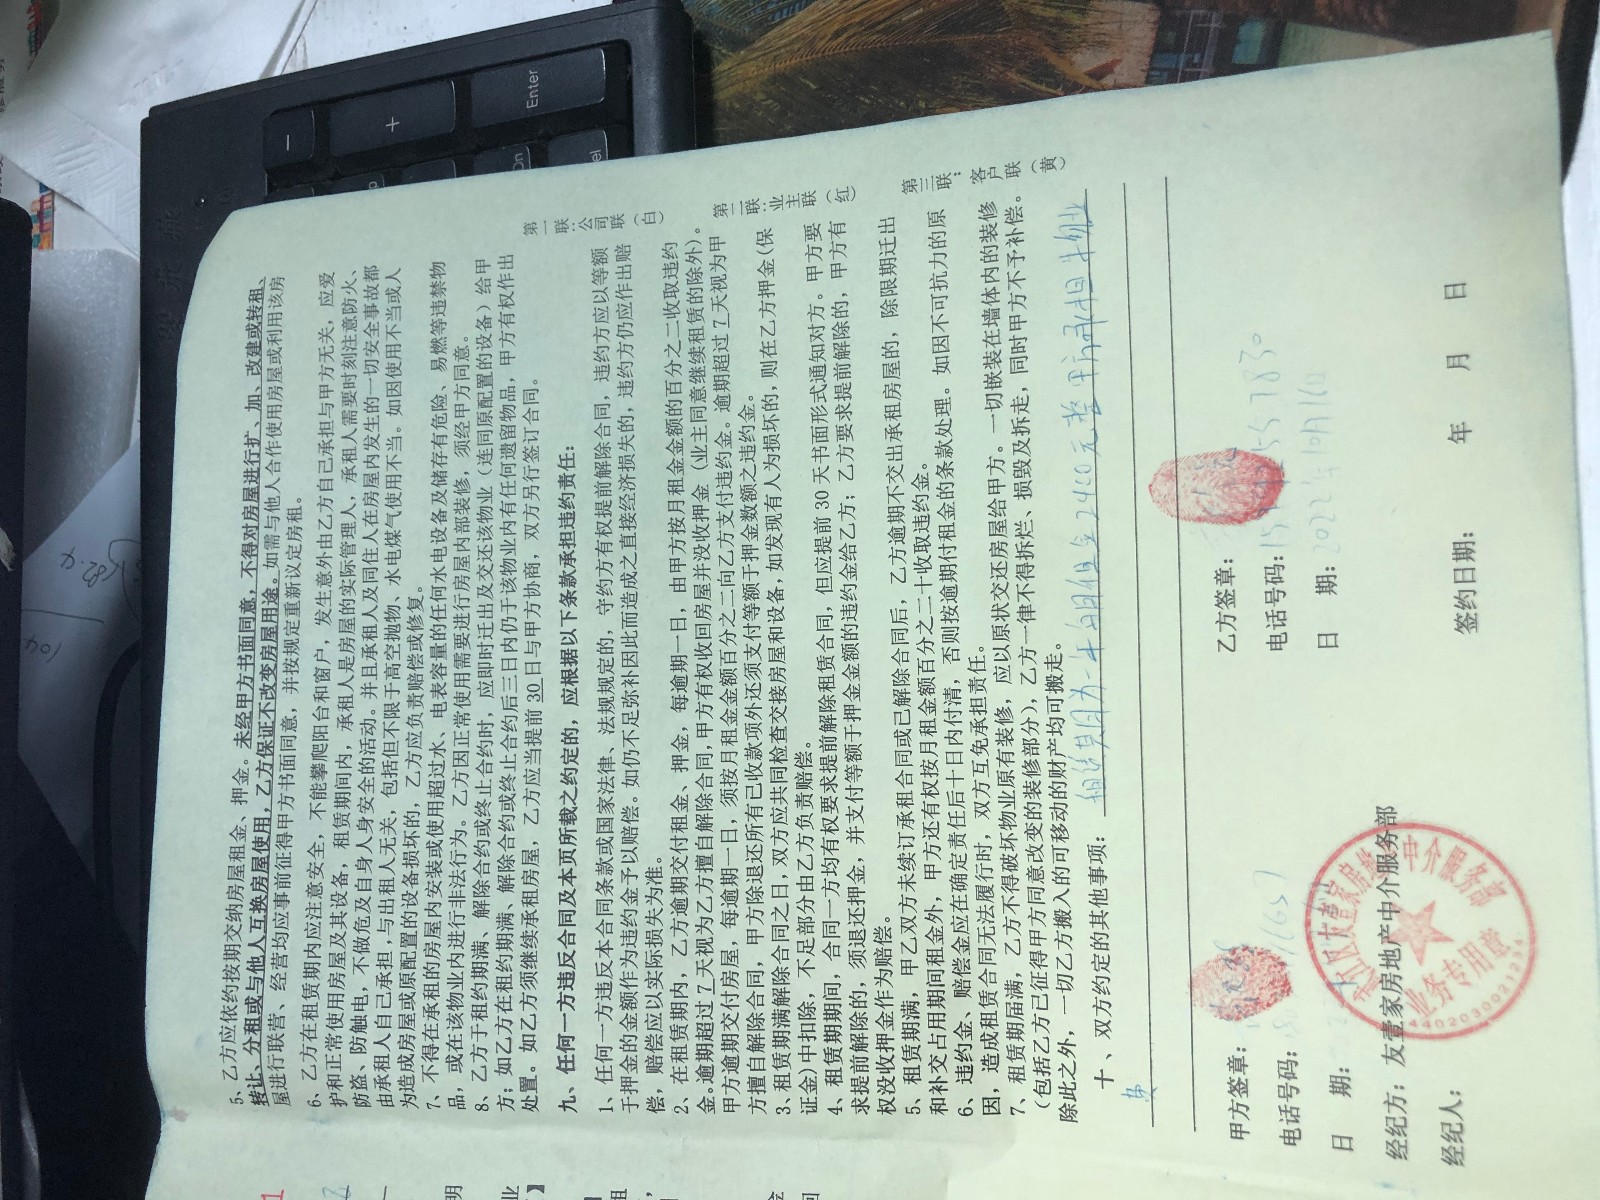 5、乙方应依约按期交纳房屋租金、押金。未经甲方书面同意，不得对房屋进行扩、加、改建或转租、
转让、分租或与他人互换房屋使用，乙方保证不改变房屋用途。如需与他人合作使用房屋或利用该房
屋进行联营、经营均应事前征得甲方书面同意，并按规定重新议定房租。
6、乙方在租赁期内应注意安全，不能攀爬阳台和窗户，发生意外由乙方自己承担与甲方无关，应爱
护和正常使用房屋及其设备，租赁期间内，承租人是房屋的实际管理人，承租人需要时刻注意防火、
防盗、防触电，不做危及自身人身安全的活动。并且承租人及同住人在房屋内发生的一切安全事故都
由承租人自己承担，与出租人无关，包括但不限于高空抛物、水电煤气使用不当。如因使用不当或人
为造成房屋或原配置的设备损坏的，乙方应负责赔偿或修复。
7、不得在承租的房屋内安装或使用超过水、电表容量的任何水电设备及储存有危险、易燃等违禁物
品，或在该物业内进行非法行为。乙方因正常使用需要进行房屋内部装修，须经甲方同意。
8、乙方于租约期满、解除合约或终止合约时，应即时迁出及交还该物业（连同原配置的设备）给甲
方；如乙方在租约期满、解除合约或终止合约后三日内仍于该物业内有任何遗留物品，甲方有权作出
处置。如乙方须继续承租房屋，乙方应当提前30日与甲方协商，双方另行签订合同。
九、任何一方违反合同及本页所载之约定的，应根据以下条款承担违约责任：
1、任何一方违反本合同条款或国家法律、法规规定的，守约方有权提前解除合同，违约方应以等额
于押金的金额作为违约金予以赔偿。如仍不足弥补因此而造成之直接经济损失的，违约方仍应作出赔
偿，赔偿应以实际损失为准。
2、在租赁期内，乙方逾期交付租金、押金，每逾期一日，由甲方按月租金金额的百分之二收取违约
金。逾期超过7天视为乙方擅自解除合同，甲方有权收回房屋并没收押金（业主同意继续租赁的除外）。
甲方逾期交付房屋，每逾期一日，须按月租金金额百分之二向乙方支付违约金。逾期超过7天视为甲
方擅自解除合同，甲方除退还所有已收款项外还须支付等额于押金数额之违约金。
3、租赁期满解除合同之日，双方应共同检查交接房屋和设备，如发现有人为损坏的，则在乙方押金（保
证金）中扣除，不足部分由乙方负责赔偿。
4、租赁期期间，合同一方均有权要求提前解除租赁合同，但应提前30天书面形式通知对方。甲方要
求提前解除的，须退还押金，并支付等额于押金金额的违约金给乙方；乙方要求提前解除的，甲方有
权没收押金作为赔偿。
5、租赁期满，甲乙双方未续订承租合同或已解除合同后，乙方逾期不交出承租房屋的，除限期迁出
和补交占用期间租金外，甲方还有权按月租金额百分之二十收取违约金。
6、违约金、赔偿金应在确定责任后十日内付清，否则按逾期付租金的条款处理。如因不可抗力的原
因，造成租赁合同无法履行时，双方互免承担责任。
7、租赁期届满，乙方不得破坏物业原有装修，应以原状交还房屋给甲方。一切嵌装在墙体内的装修
（包括乙方已征得甲方同意改变的装修部分），乙方一律不得拆烂、损毁及拆走，同时甲方不予补偿。
除此之外，一切乙方搬入的可移动的财产均可搬走。
十、双方约定的其他事项：租赁期为一年 月租金2400元整
第一联：公司联（白）
第二联：业主联（红）
第三联：客户联（黄）
甲方签章：
乙方签章：
电话号码：
电话号码：
日 期：
日 期：2022年10月16日
经纪方：友壹家房地产中介服务部
经纪人：
签约日期： 年 月 日
友壹家房地产中介服务部
业务专用章
Enter
+
-